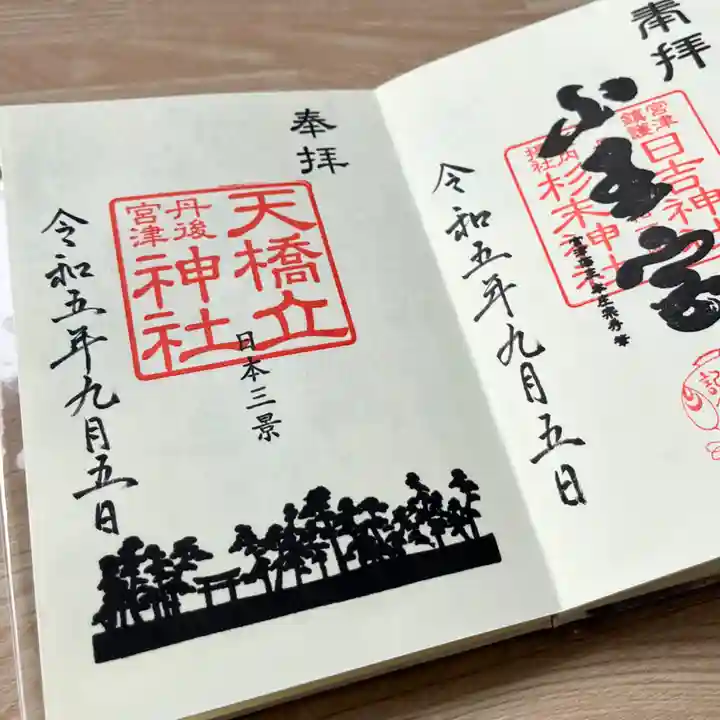 奉拝
天橋立
神社
丹後
宮津
日本三景
令和五年九月五日
奉拝
宮津
鎮護
日吉神社
杉末神社
山王宮
令和五年九月五日